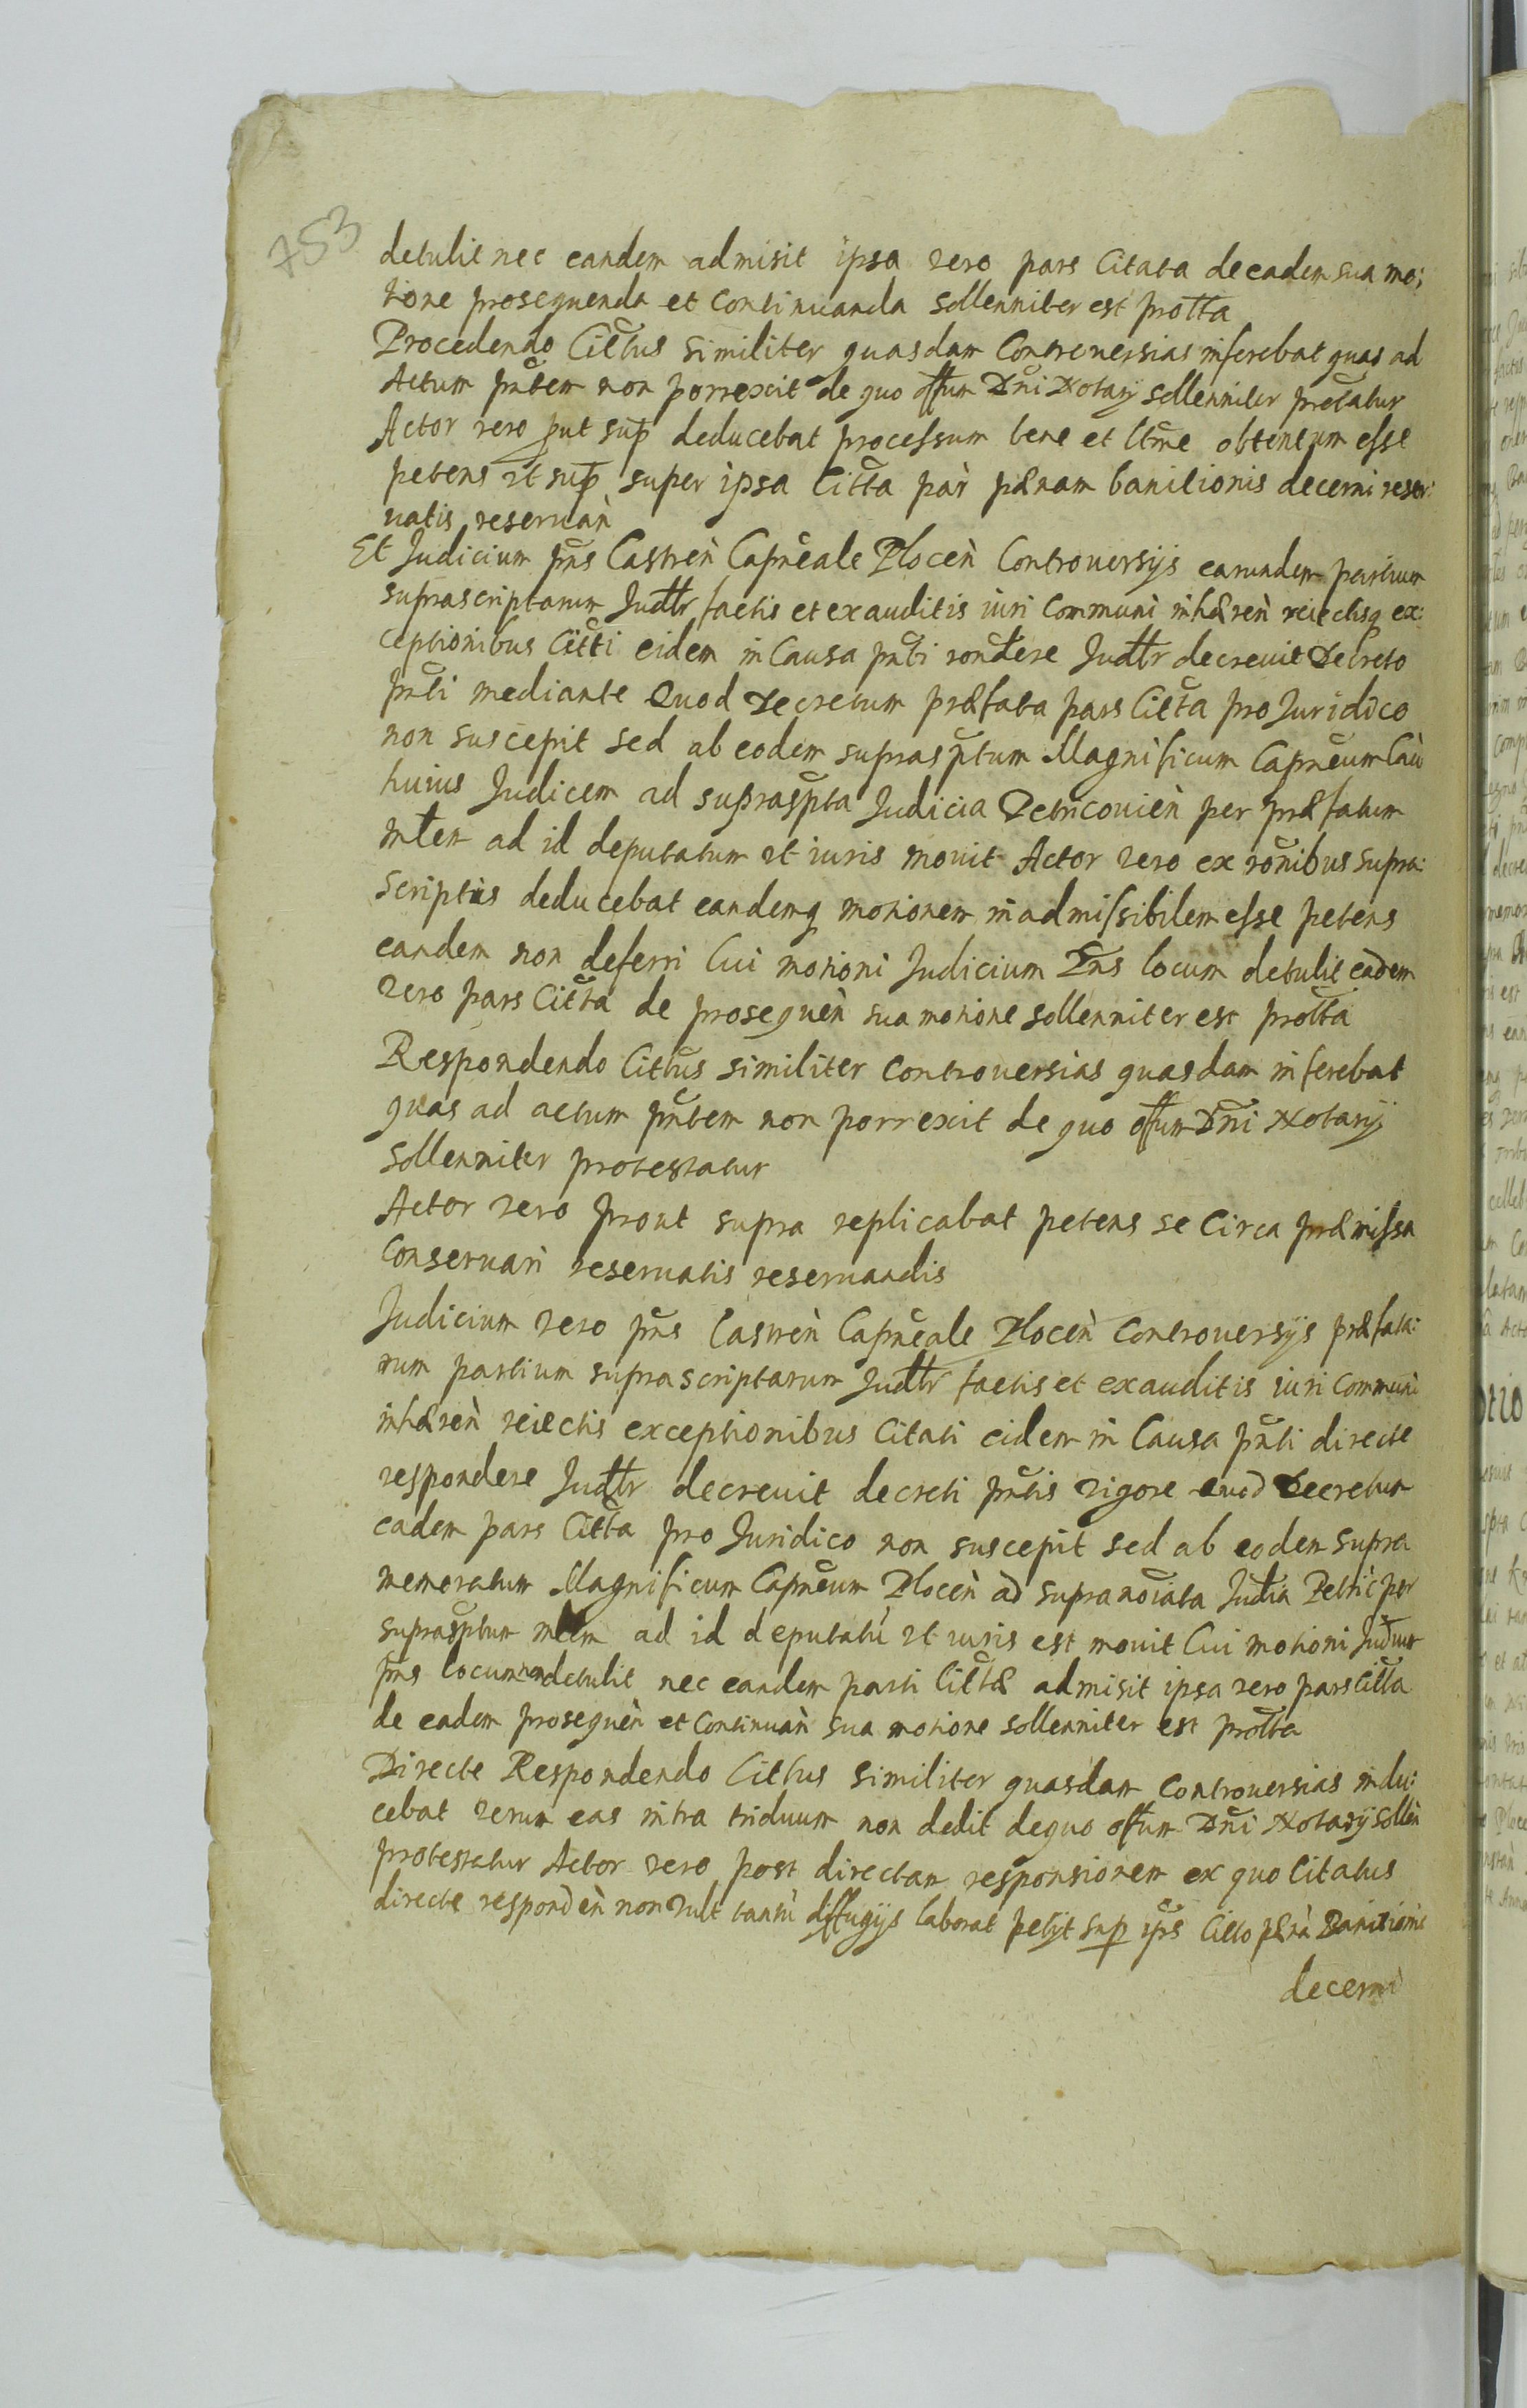 753
detulit nec eandem admisit ipsa vero pars Citata de eadem sua mo:
tione prosequenda et Continuanda sollenniter est protta
Procedendo Cittus similiter quasdam Controuersias inferebat quas ad
Actum pntem non porrexit de quo offum Dni Notarÿ sollenniter pretatur
Actor vero put sup deducebat processum bene et ltme obtentum esse
petens vt sup super ipsa Citta par pænam banitionis decerni reser:
uatis reseruan
Et Judicium pns Castren Capneale Plocen Controuersÿs earundem partium
suprascriptarum Judtr factis et exauditis iuri Communi inhæren reiectisq ex:
ceptionibus Citti eidem in Causa pnti rondere Judtr decreuit Decreto
pnti mediante Quod Decretum præfata pars Citta pro Juridico
non suscepit sed ab eodem suprasptum Magnificum Capneum Cau
huius Judicem ad supraspta Judicia Petricouien per præfatum
mtem ad id deputatum vt iuris mouit Actor vero ex ronibus supra:
scriptis deducebat eandemq motionem inadmissibilem esse petens
eandem non deferri Cui motioni Judicium Pns locum detulit eadem
vero pars Citta de prosequen sua motione sollenniter est protta
Respondendo Cittus similiter Controuersias quasdam inferebat
quas ad actum pntem non porrexit de quo offum Dni Notarÿ
sollenniter protestatur
Actor vero prout supra replicabat petens se Circa præmissa
Conseruari reseruatis reseruandis
Judicium vero pns Castren Capneale Plocen Controuersÿs præfata:
rum partium suprascriptarum Judtr factis et exauditis iuri Communi
inhæren reiectis exceptionibus Citati eidem in Causa pnti directe
respondere Judtr decreuit decreti pntis vigore quod Decretum
eadem pars Citta pro Juridico non suscepit sed ab eodem supra
memoratum Magnificum Capneum Plocen ad supranoiata Judia Petric per
suprasptum mtem ad id deputatu vt iuris est mouit Cui motioni Judium
pns locum non detulit nec eandem parti Cittæ admisit ipsa vero pars Citta
de eadem prosequen et Continuan sua motione sollenniter est protta
Directe Respondendo Cittus similiter quasdam Controuersias indu:
cebat verum eas intra triduum non dedit de quo offum Dni Notarÿ sollen
protestatur Actor vero post directam responsionem ex quo Citatus
directe responden non vult tantu diffugÿs laborat petÿt sup ips Citto pæna Banitionis
decerni